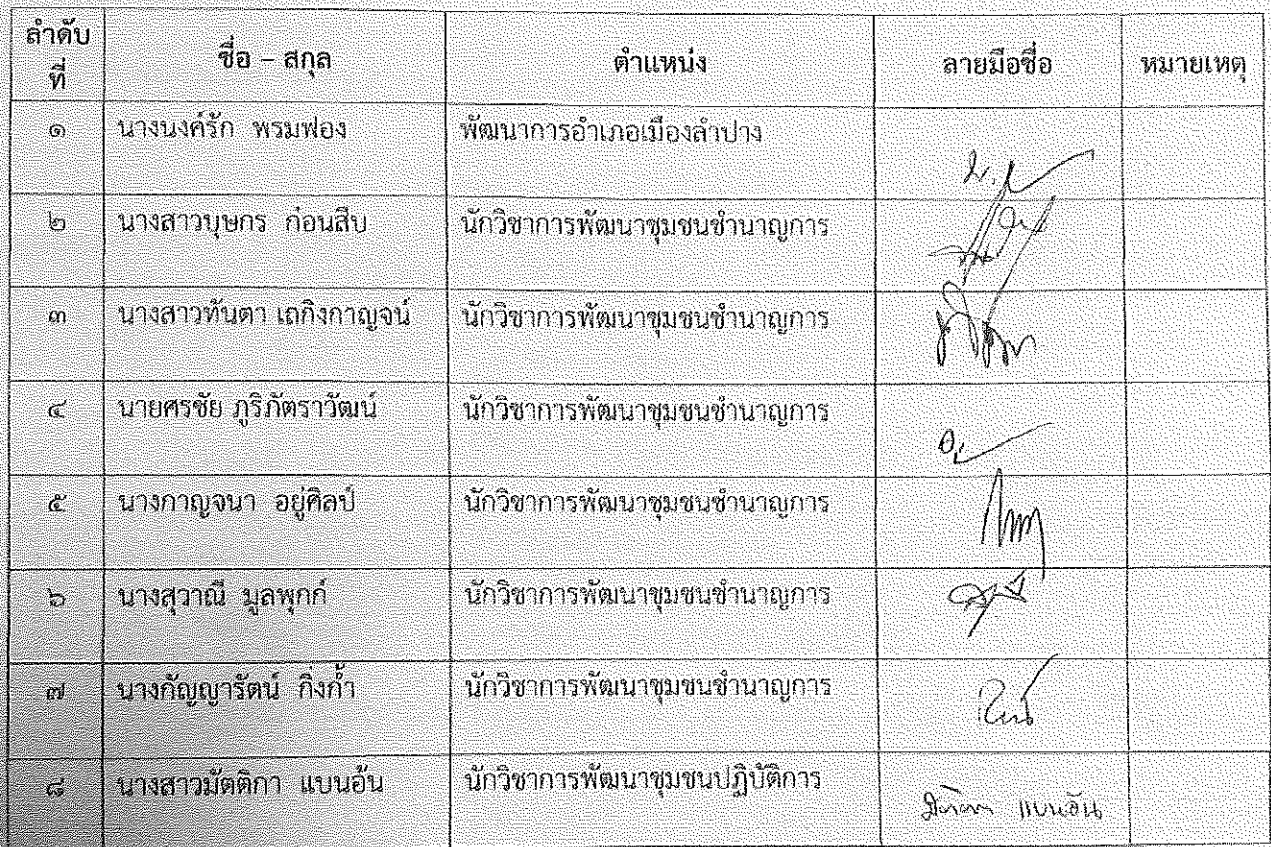 ลำดับ
ที่
ชื่อ – สกุล ตำแหน่ง ลายมือชื่อ หมายเหตุ
๑ นางนงค์รัก พรมฟอง พัฒนาการอำเภอเมืองลำปาง
๒ นางสาวบุษกร ก่อนสืบ นักวิชาการพัฒนาชุมชนชำนาญการ
๓ นางสาวทันตา เถกิงกาญจน์ นักวิชาการพัฒนาชุมชนชำนาญการ
๔ นายศรชัย ภูริภัตราวัฒน์ นักวิชาการพัฒนาชุมชนชำนาญการ
๕ นางกาญจนา อยู่ศิลป์ นักวิชาการพัฒนาชุมชนชำนาญการ
๖ นางสุวาณี มูลพุกก์ นักวิชาการพัฒนาชุมชนชำนาญการ
๗ นางกัญญารัตน์ กิ่งก้ำ นักวิชาการพัฒนาชุมชนชำนาญการ
๘ นางสาวมัตติกา แบนอ้น นักวิชาการพัฒนาชุมชนปฏิบัติการ
แบนอ้น